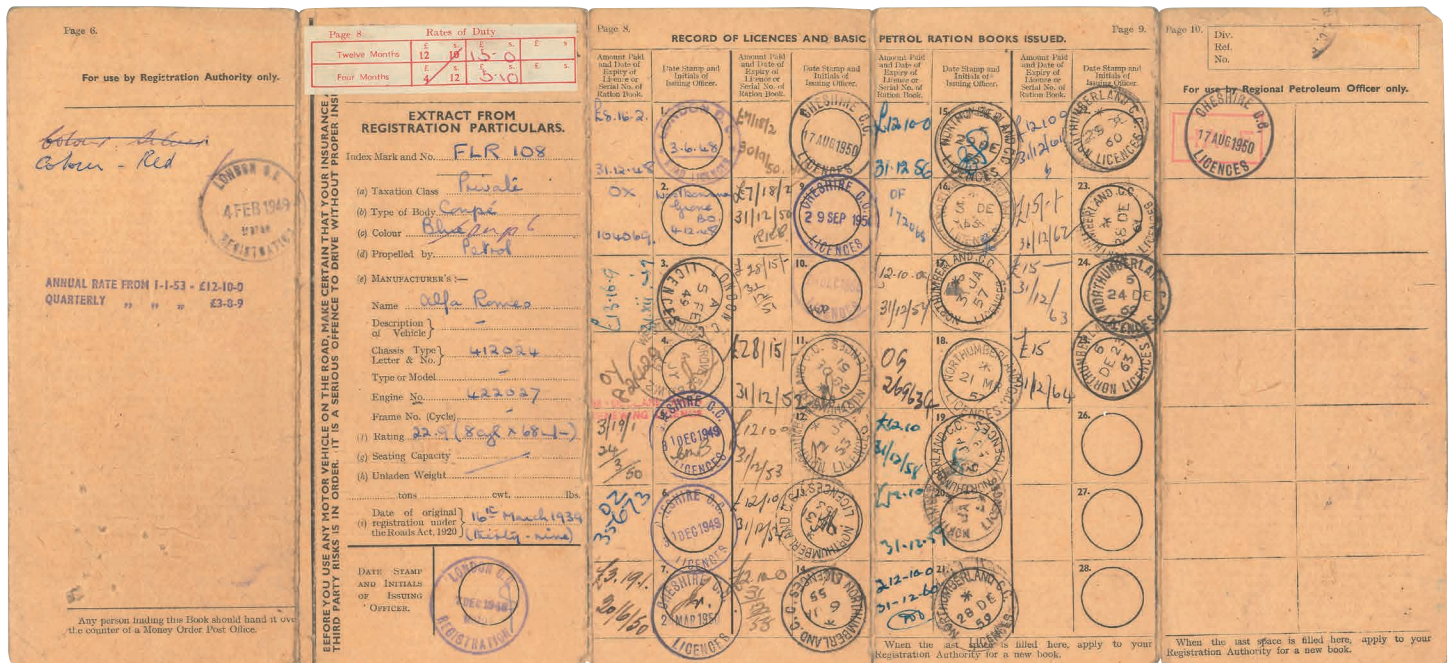 Page 6.
For use by Registration Authority only.
Colour - Red
LONDON C.C.
4 FEB 1949
REGISTRATION
ANNUAL RATE FROM 1-1-53 - £12-10-0
QUARTERLY " " " £3-8-9
Any person finding this Book should hand it over
the counter of a Money Order Post Office.
BEFORE YOU USE ANY MOTOR VEHICLE ON THE ROAD, MAKE CERTAIN THAT YOUR INSURANCE
THIRD PARTY RISKS IS IN ORDER. IT IS A SERIOUS OFFENCE TO DRIVE WITHOUT PROPER INS
Page 8. Rates of Duty
£ s. £ s. £ s.
Twelve Months 12 10 15-0
£ s. £ s. £ s.
Four Months 4 12 5-10
EXTRACT FROM
REGISTRATION PARTICULARS.
Index Mark and No. FLR 108
(a) Taxation Class Private
(b) Type of Body Coupé
(c) Colour Blue
(d) Propelled by Petrol
(e) MANUFACTURER'S :—
Name Alfa Romeo
Description
of Vehicle
Chassis Type
Letter & No. 412024
Type or Model
Engine No. 422027
Frame No. (Cycle)
(f) Rating 22.9 (8 cyl x 68 m/m)
(g) Seating Capacity
(h) Unladen Weight
tons cwt. lbs.
Date of original
(i) registration under
the Roads Act, 1920
16th March 1939
(thirty-nine)
DATE STAMP
AND INITIALS
OF ISSUING
OFFICER.
LONDON C.C.
DEC 1948
REGISTRATION
Page 8.
RECORD OF LICENCES AND BASIC PETROL RATION BOOKS ISSUED.
Page 9.
Amount Paid
and Date of
Expiry of
Licence or
Serial No. of
Ration Book.
Date Stamp and
Initials of
Issuing Officer.
Amount Paid
and Date of
Expiry of
Licence or
Serial No. of
Ration Book.
Date Stamp and
Initials of
Issuing Officer.
Amount Paid
and Date of
Expiry of
Licence or
Serial No. of
Ration Book.
Date Stamp and
Initials of
Issuing Officer.
Amount Paid
and Date of
Expiry of
Licence or
Serial No. of
Ration Book.
Date Stamp and
Initials of
Issuing Officer.
£8.16.2.
31.12.48
1.
LONDON C.C.
3-6-48
OX
104069
2.
Westbourne
Grove
B.O.
4-12-48
£13-16-9
3.
LONDON C.C.
5 FE
49
LICENCES
OY
4.
3/19/1
24/3/50
CHESHIRE C.C.
1 DEC 1949
LICENCES
OZ
6.
CHESHIRE C.C.
1 DEC 1949
LICENCES
£3.19.1.
30/6/50
7.
CHESHIRE C.C.
MAR 1950
LICENCES
30/9/50.
CHESHIRE C.C.
17 AUG 1950
LICENCES
£7/18/2
31/12/50
9.
CHESHIRE C.C.
29 SEP 1950
LICENCES
£28/15/-
10.
£28/15/
31/12/52
11.
12 10 0
31/12/53
12.
£12/10/
31/12/54
NORTHUMBERLAND C.C.
LICENCES
14.
NORTHUMBERLAND C.C.
55
LICENCES
£12.10-0
31.12.56
15.
NORTHUMBERLAND C.C.
LICENCES
OF
16.
12-10-0
31/12/57
NORTHUMBERLAND C.C.
JA
57
LICENCES
OG
269634
18.
NORTHUMBERLAND
21 MR
57
LICENCES
£12.10
31/12/58
19.
£12-10
31-12-59
20.
£12-10-0
31-12-60
21.
NORTHUMBERLAND C.C.
28 DE
59
LICENCES
£12 10 0
31/12/61
NORTHUMBERLAND C.C.
60
LICENCES
£15-/-
31/12/62
23.
28 DE
61
£15-
31/12/
63
24.
NORTHUMBERLAND
24 DE
62
LICENCES
£15
31/12/64
NORTHUMBERLAND
DE 23
63
LICENCES
26.
27.
28.
When the last space is filled here, apply to your
Registration Authority for a new book.
Page 10.
Div.
Rel.
No.
For use by Regional Petroleum Officer only.
CHESHIRE C.C.
17 AUG 1950
LICENCES
When the last space is filled here, apply to your
Registration Authority for a new book.